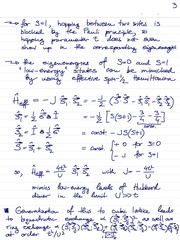 3
* for S=1, hopping between two sites is
blocked by the Pauli principle, so
hopping parameter t does not even
show up in the corresponding eigenenergies
* the eigenenergies of S=0 and S=1
low-energy states can be mimicked
by using effective spin-½ hamiltonian
Ĥeff = -J S⃗₁·S⃗₂ = -J/2 (S⃗·S⃗ - S⃗₁·S⃗₁ - S⃗₂·S⃗₂)
S⃗ = S⃗₁ + S⃗₂ = -J/2 [S(S+1) - 3/4 - 3/4]
= const - JS(S+1)/2
= const + { 0 for S=0
-J for S=1
so, Ĥeff = 4t²/U S⃗₁·S⃗₂ with J = -4t²/U
mimics low-energy levels of Hubbard
dimer in the limit U>>t
* Generalization of this to cubic lattice leads
biquadratic exchange as well as
ring exchange
at order t⁴/U³